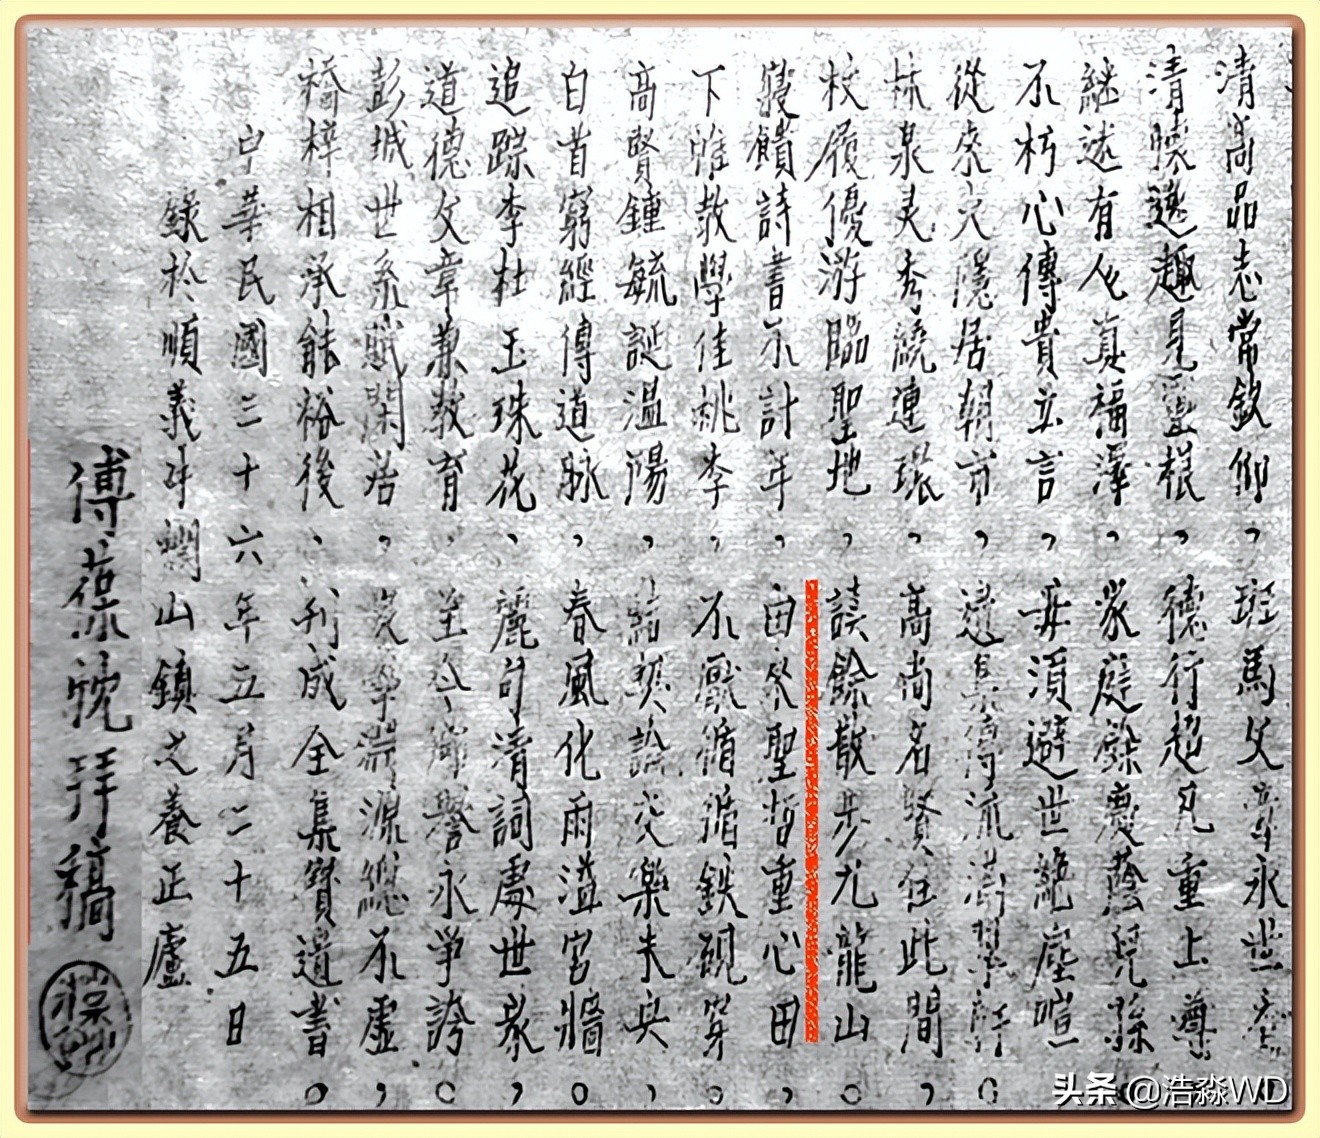 清高品志常欽仰，班馬文章永世
清曠逸趣見靈根，德行超凡重上尊
繼述有人真福澤，家庭餘慶蔭兒孫
不朽心傳貴立言，毋須避世絕塵喧
從來大隱居朝市，
林泉灵秀繞連環，高尚名賢住此間，
杖履優游臨聖地，談餘散步九龍山。
寢饋詩書不計年，由來聖哲重心田，
下帷教學佳桃李，不厭循循鉄硯穿。
高賢鍾毓誕温陽，結契論交樂未央，
白首窮經傳道脉，春風化雨溢宮牆。
追踪李杜玉珠花，麗句清詞處世家，
道德文章兼教育，至今鄉譽永爭誇。
彭城世系賦閑居，淵源總不虛，
橋梓相承能裕後，刊成全集讚遺書。
中華民國三十六年五月二十五日
錄於順義牛欄山鎮之養正廬
傅葆忱拜稿
头条 @浩淼WD